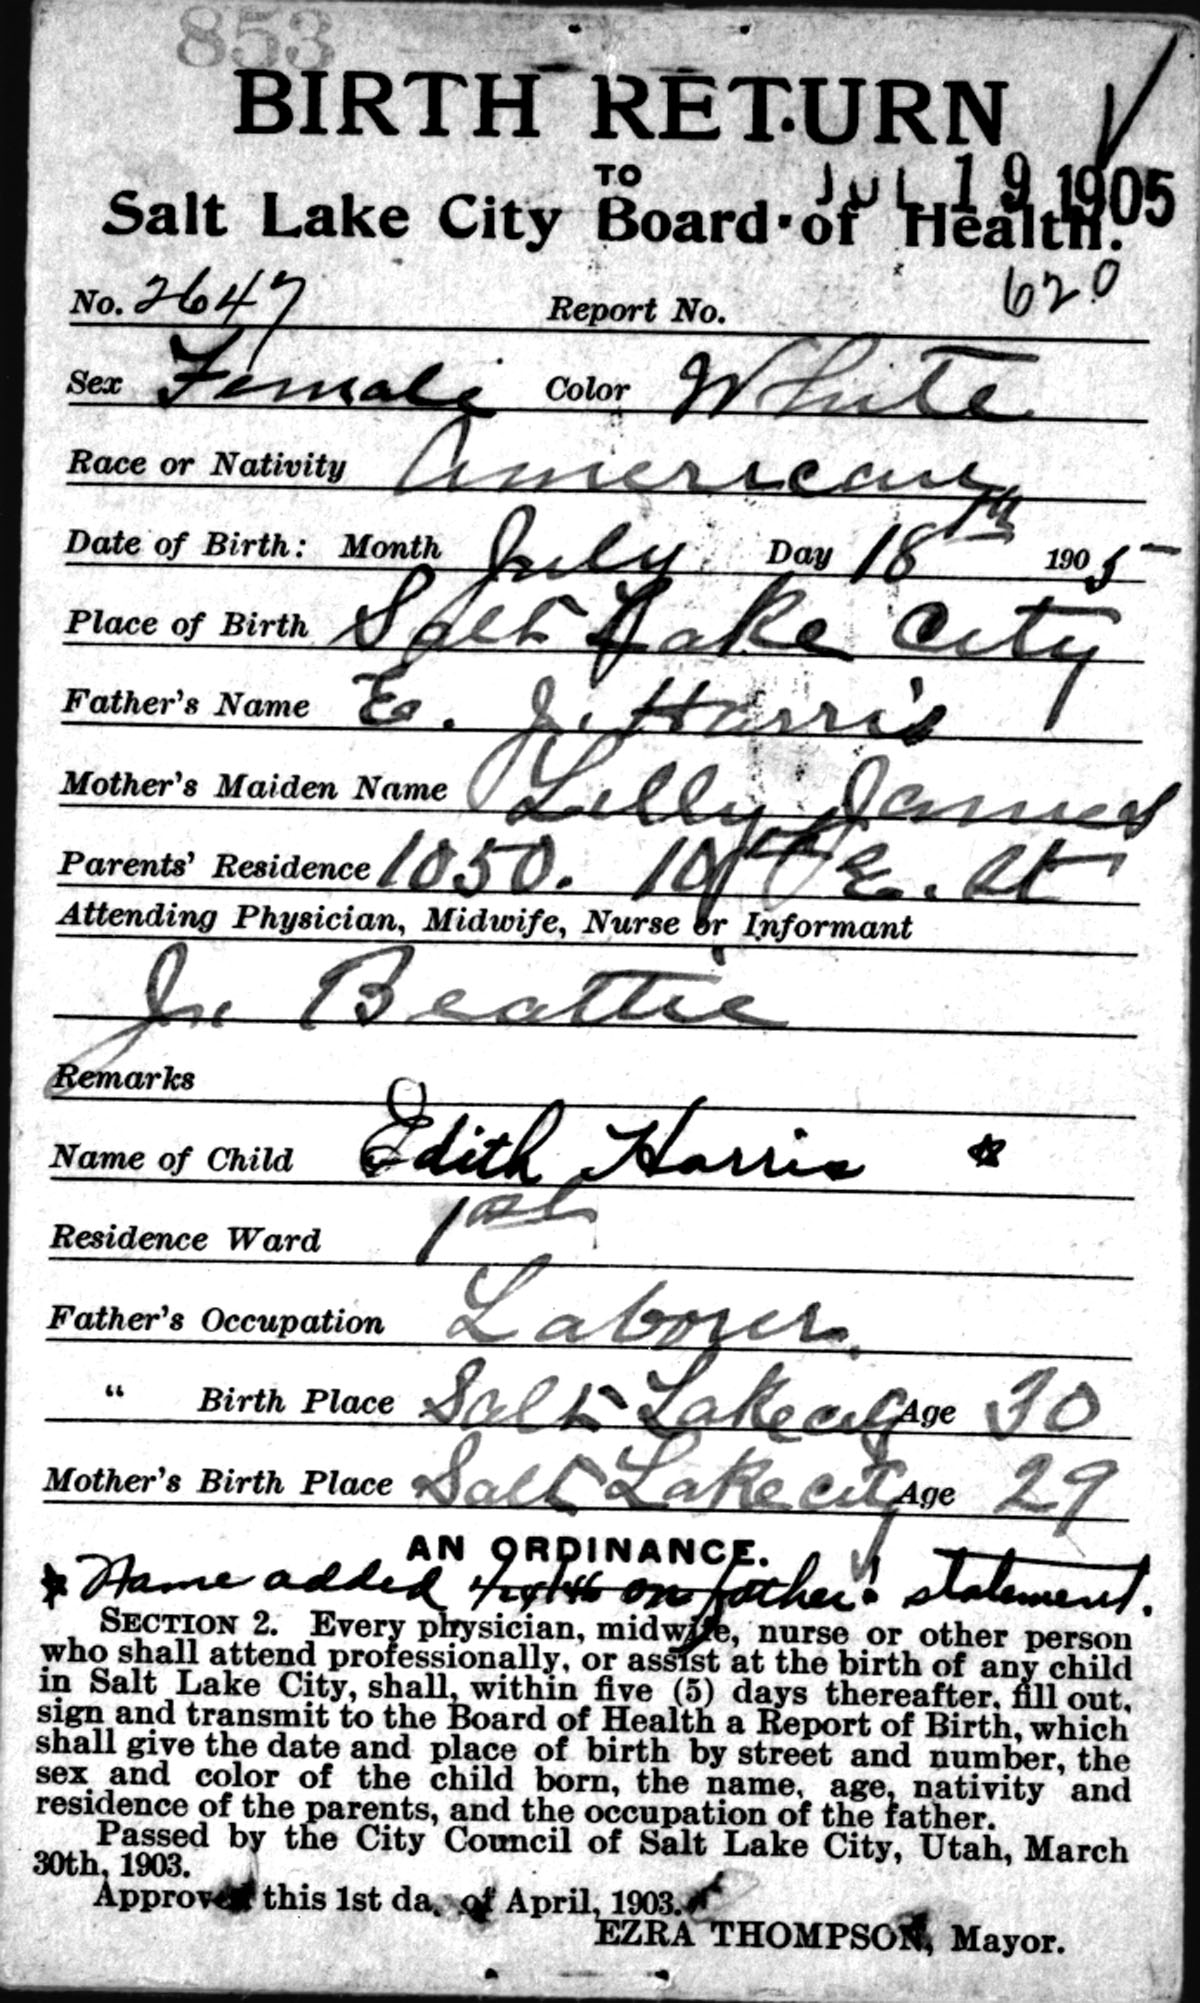 853
BIRTH RETURN
TO
JUL 19 1905
Salt Lake City Board of Health.
620
No. 2647 Report No.
Sex Female Color White
Race or Nativity American
Date of Birth: Month July Day 18th 1905
Place of Birth Salt Lake City
Father's Name E. J. Harris
Mother's Maiden Name Lilly James
Parents' Residence 1050. 10th E. St
Attending Physician, Midwife, Nurse or Informant
Beattie
Remarks
Name of Child Edith Harris *
Residence Ward 1st
Father's Occupation Laborer.
" Birth Place Salt Lake city Age 30
Mother's Birth Place Salt Lake city Age 29
AN ORDINANCE.
* Name added on father's statement.
SECTION 2. Every physician, midwife, nurse or other person
who shall attend professionally, or assist at the birth of any child
in Salt Lake City, shall, within five (5) days thereafter, fill out,
sign and transmit to the Board of Health a Report of Birth, which
shall give the date and place of birth by street and number, the
sex and color of the child born, the name, age, nativity and
residence of the parents, and the occupation of the father.
Passed by the City Council of Salt Lake City, Utah, March
30th, 1903.
Approved this 1st day of April, 1903.
EZRA THOMPSON, Mayor.